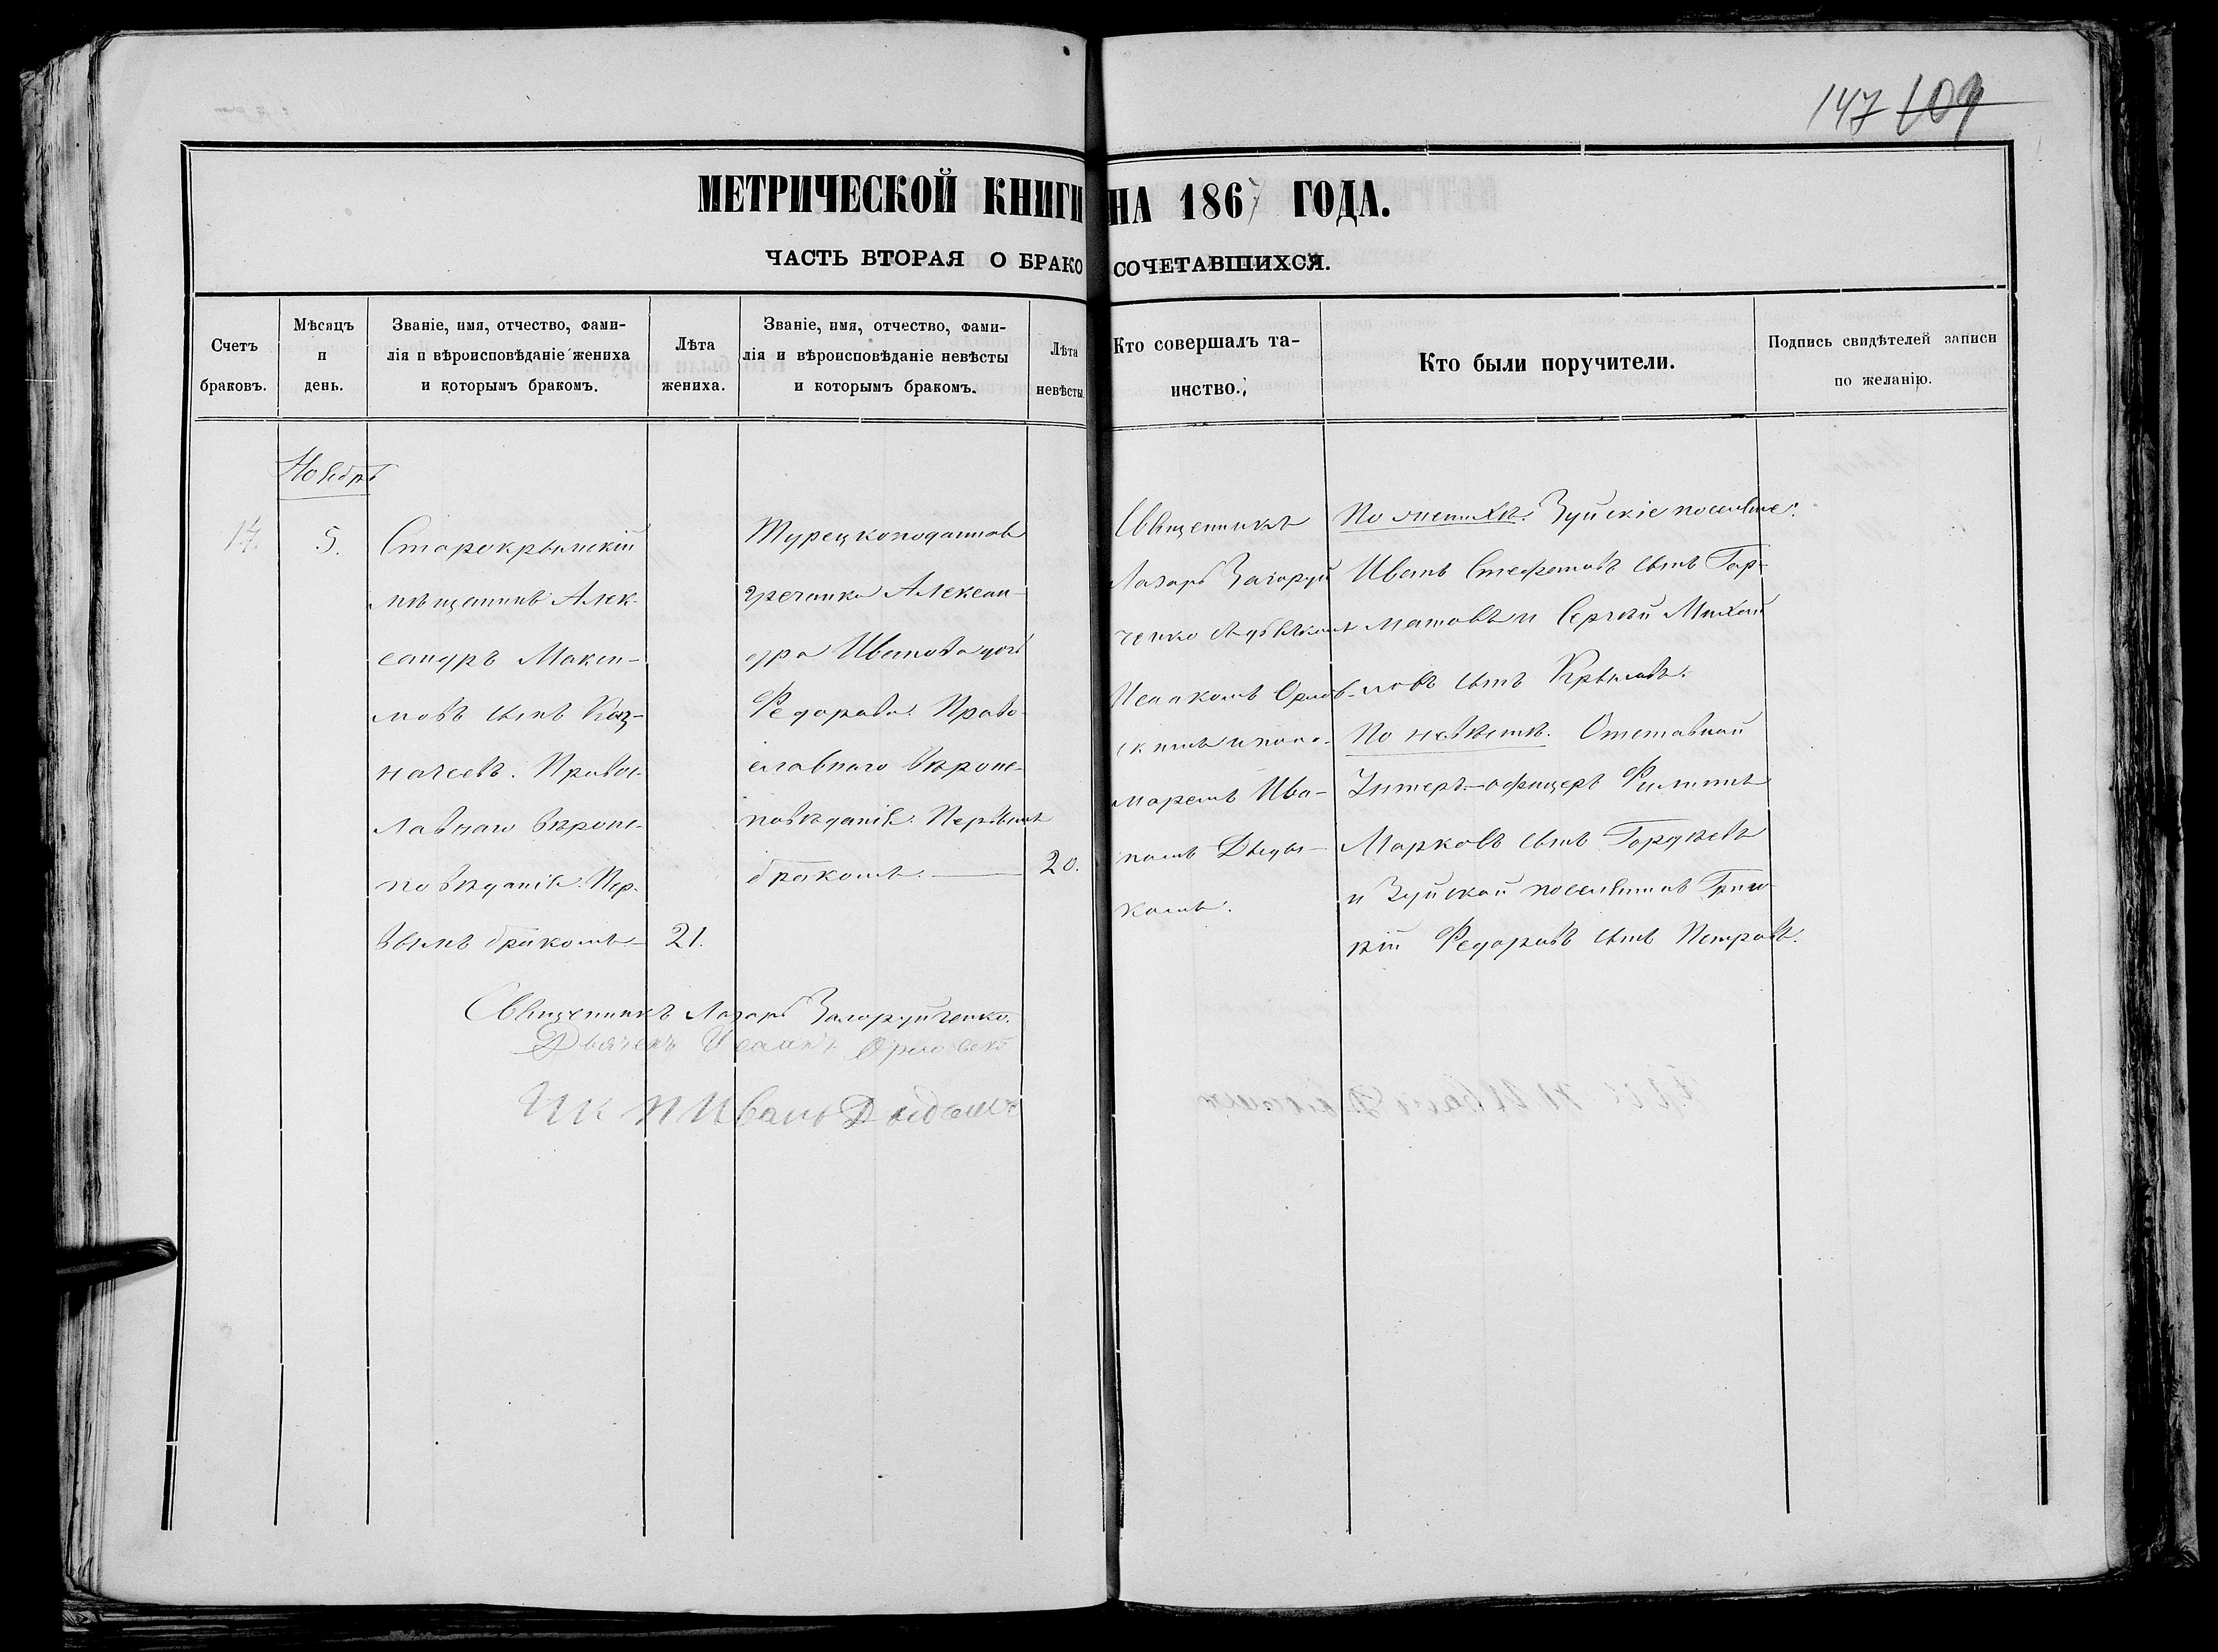 147 109
МЕТРИЧЕСКОЙ КНИГИ НА 1867 ГОДА.
ЧАСТЬ ВТОРАЯ О БРАКОСОЧЕТАВШИХСЯ.
Счетъ
браковъ.
Мѣсяцъ
и
день.
Званіе, имя, отчество, фами-
лія и вѣроисповѣданіе жениха
и которымъ бракомъ.
Лѣта
жениха.
Званіе, имя, отчество, фами-
лія и вѣроисповѣданіе невѣсты
и которымъ бракомъ.
Лѣта
невѣсты.
Кто совершалъ та-
инство.
Кто были поручители.
Подпись свидѣтелей записи
по желанію.
Ноябрь
14.
5.
Старокрымскій
мѣщанинъ Алек-
сандръ Макси-
мовъ сынъ Каз-
начеевъ. Правос-
лавнаго вѣроис-
повѣданія. Пер-
вымъ бракомъ
21.
Турецкоподанная
гречанка Алексан-
дра Иванова дочь
Федорова. Право-
славнаго вѣроис-
повѣданія. Первымъ
бракомъ.
20.
Священникъ
Лазарь Загоруй
ченко съ дьячкомъ
Исаакомъ Орлов-
скимъ и поно-
маремъ Ива-
номъ Дьяды-
комъ.
По женихѣ: Зуйскіе поселяне:
Иванъ Стефановъ сынъ Гор-
матовъ и Сергѣй Михай
ловъ сынъ Крыловъ.
По невѣстѣ. Отставной
Унтеръ-офицеръ Филиппъ
Марковъ сынъ Гордѣевъ
и Зуйской поселянинъ Григо-
рій Федоровъ сынъ Петровъ.
Священникъ Лазарь Загоруйченко.
Дьячекъ Исаакъ Орловскій
Иванъ